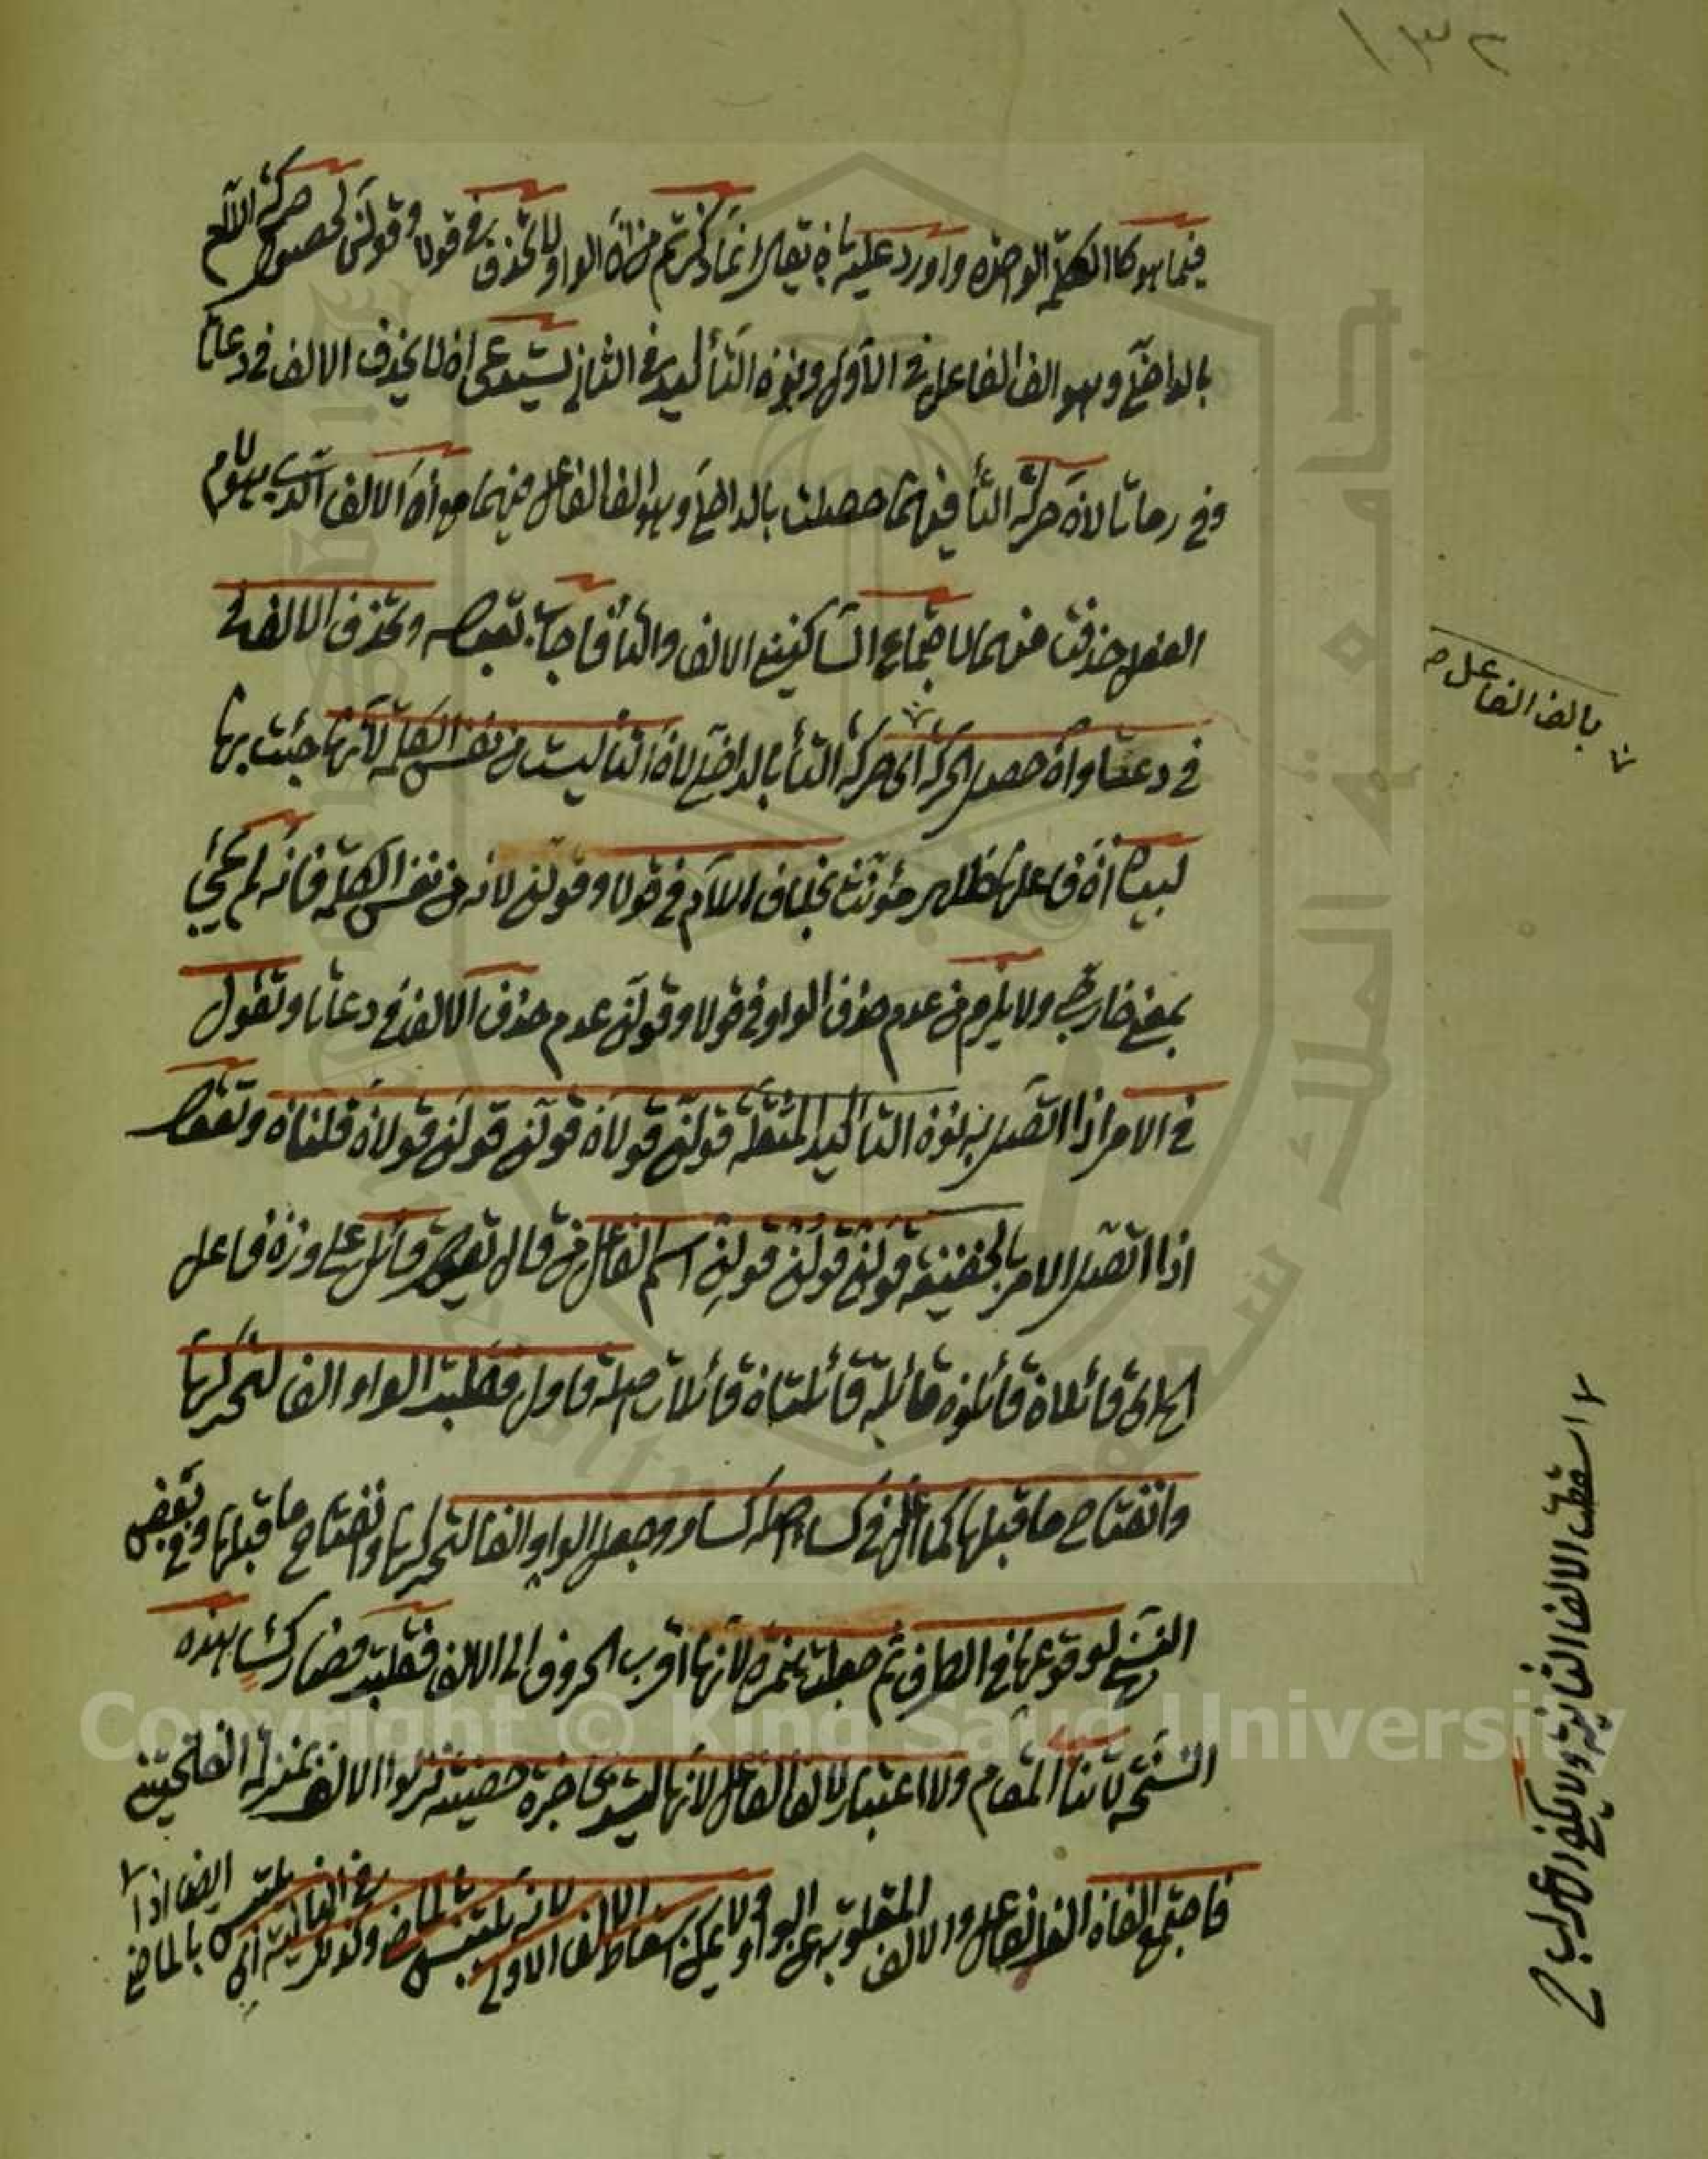 ١٣٢
فيما هو كالكلمة الواحدة واورد عليه بان يقال انما ذكرتم من ان الواو لا تحذف في قولا وقولن لحصول حركة اللام
بالداخلي وهو الف الفاعل في الاول ونون التأكيد في الثاني يستدعي ان لا يحذف الالف في دعاتا
وفي رماتا لان حركة التاء فيهما حصلت بالداخلي وهو الف الفاعل فيهما مع ان الالف الذي هو لام
الفعل حذفت منهما لاجتماع الساكنين الالف والتاء فاجاب بقوله وتحذف الالف
في دعتا وان حصل الحركة اي حركة التاء بالداخلي لان التاء ليست من نفس الكلمة لانها جيئت بها
لبيان ان فاعلها ظاهر مؤنث بخلاف اللام في قولا وقولن لانه من نفس الكلمة فانه لم يجئ
بمعنى خارجي ولا يلزم من عدم حذف الواو في قولا وقولن عدم حذف الالف في دعتا وتقول
في الامر اذا اتصل به نون التأكيد المثقلة قولن قولان قولن قولن قولان قلنان وتقول
اذا اتصل الامر بالخفيفة قولن قولن قولن اسم الفاعل من قال يقول قائل على وزن فاعل
قائلان قائلون قائلة قائلتان قائلات اصله قاول فقلبت الواو الفا لتحركها
وانفتاح ما قبلها كما في كساء اصله كساو وجعل الواو الفا لتحركها وانفتاح ما قبلها وفي بعض
النسخ لوقوعها في الطرف ثم جعلت همزة لانها اقرب الحروف الى الالف فقلبت فصار كساء هذه
النسخة المقام ولا اعتبار لالف الفاعل لانها ليست بحاجزة حصينة الالف بمنزلة الفتحتين
فاجتمع الفان الف الفاعل والالف المقلوبة عن الواو ولا يمكن اسقاط الالف الاولى لانه يلتبس بالماضي
بالف الفاعل صح
اسقطت الالف الثانية ولا يكفي الاعراب